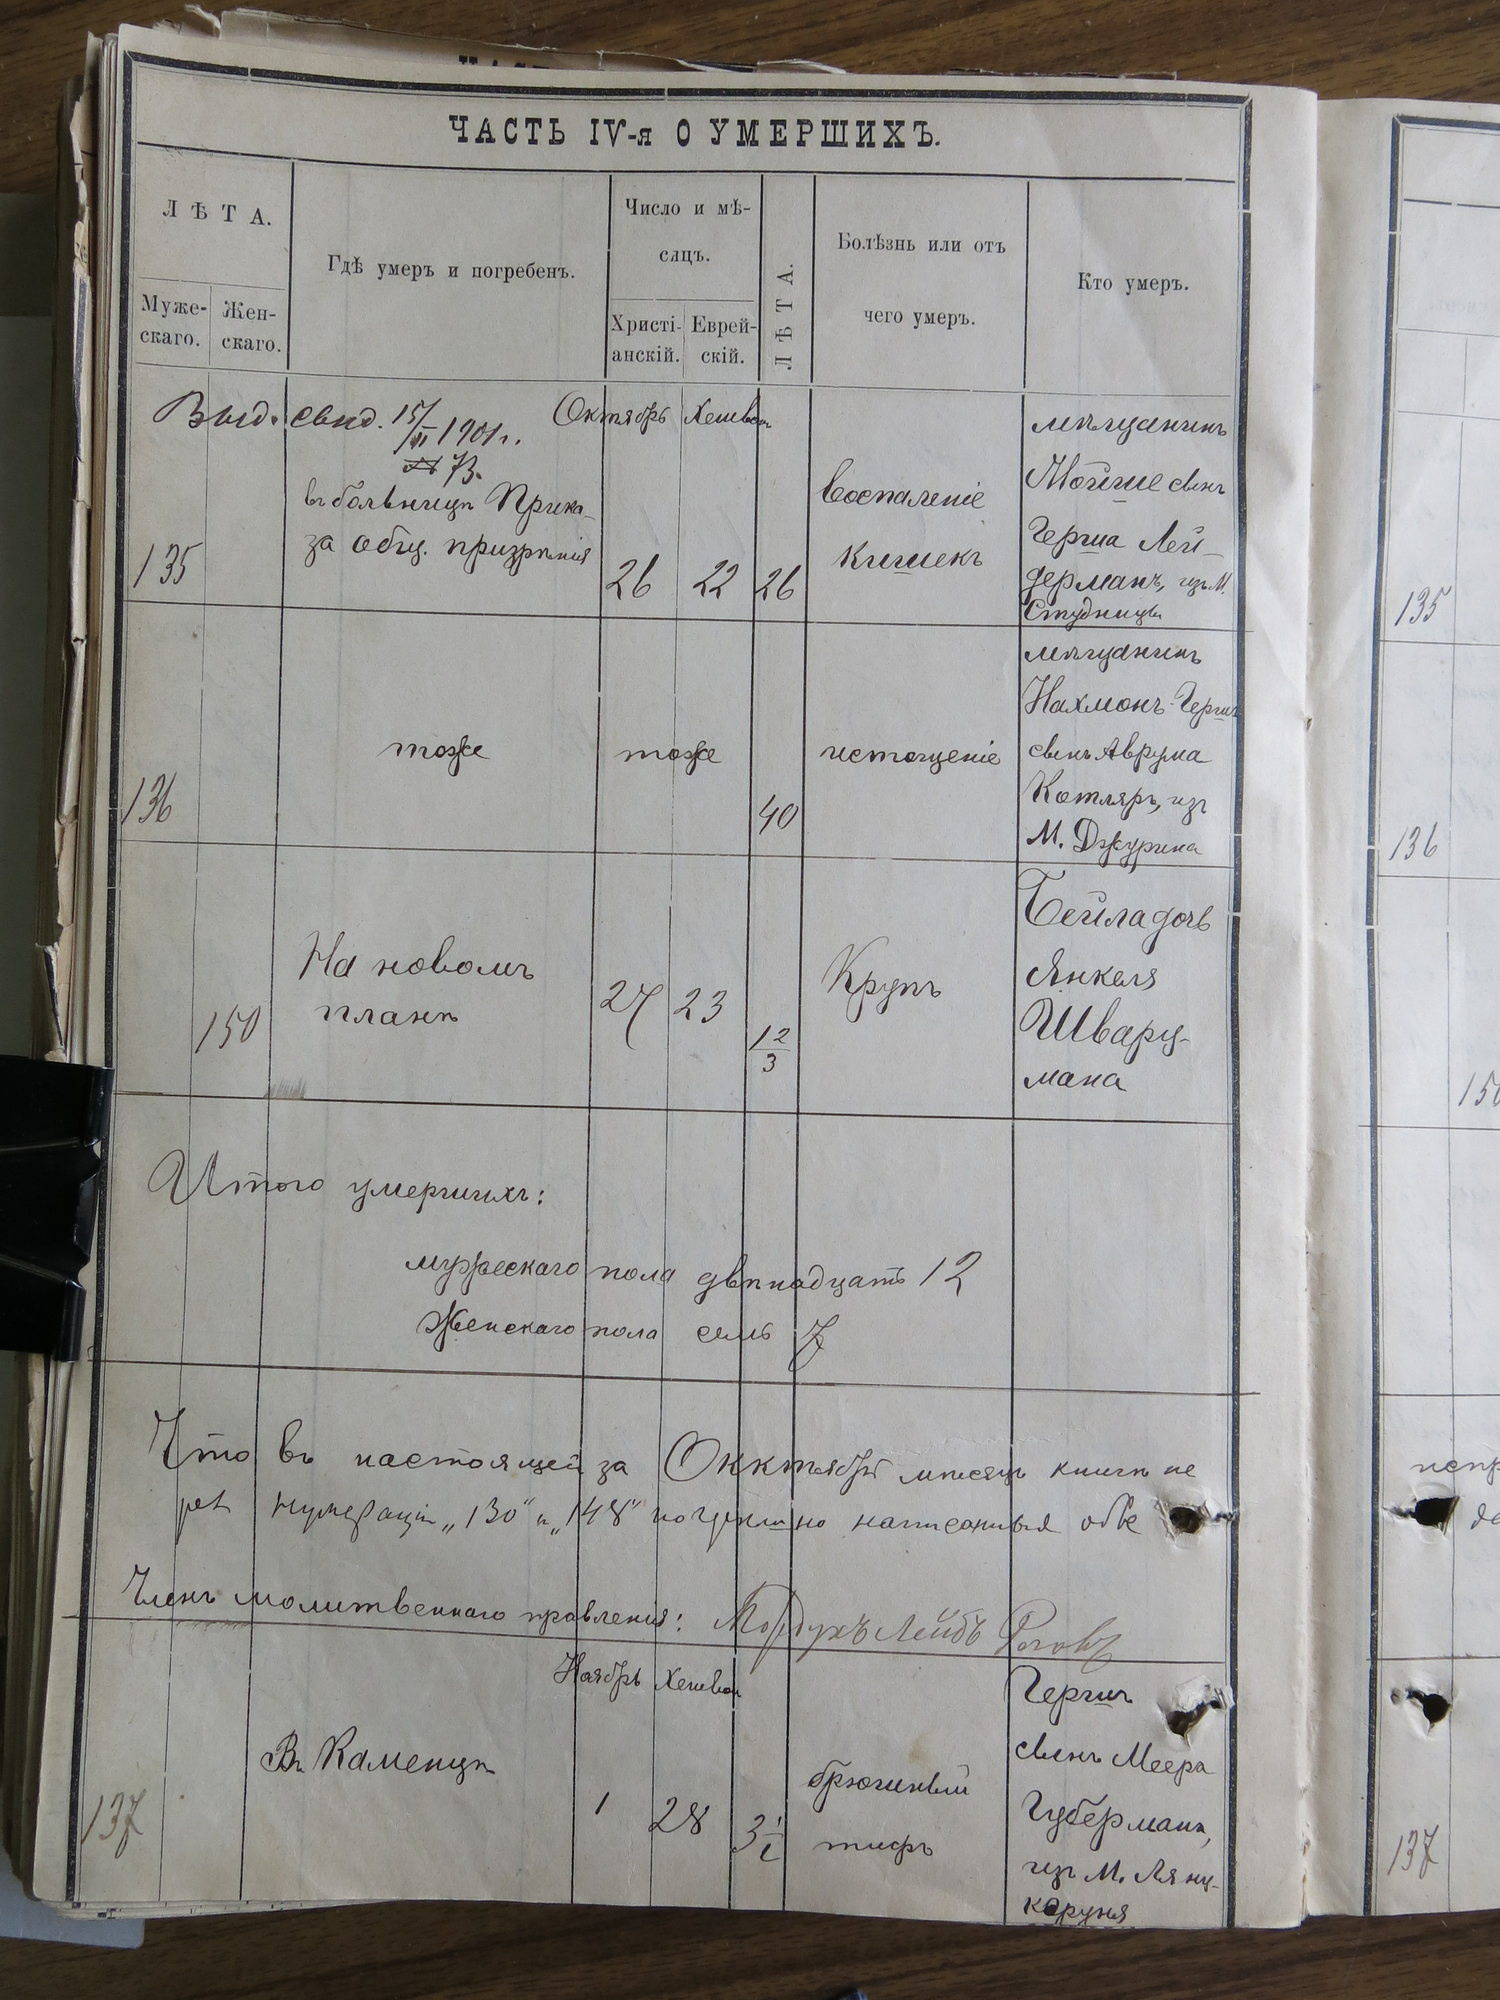 ЧАСТЬ IV-я О УМЕРШИХЪ.
ЛѢТА.
Муже-
скаго.
Жен-
скаго.
Гдѣ умеръ и погребенъ.
Число и мѣ-
сяцъ.
Христі-
анскій.
Еврей-
скій.
ЛѢТА.
Болѣзнь или отъ
чего умеръ.
Кто умеръ.
Выд. свид. 15/VI 1901 г.
№ 73.
Октябрь Хешван
135
въ больницѣ Прика-
за общ. призрѣнія
26 22 26
воспаленіе
кишекъ
мѣщанинъ
Мойше сынъ
Герша Лей-
дерманъ, изъ М.
Студницы
136
тоже
тоже
40
истощеніе
мѣщанинъ
Нахмонъ-Гершъ
сынъ Аврума
Котляръ, изъ
М. Джурина
150
На новомъ
планѣ
27 23
1 2/3
Крупъ
Бейла дочь
Янкеля
Шварц-
мана
Итого умершихъ:
мужескаго пола двѣнадцать 12
Женскаго пола семь 7
Что въ настоящей за Окктябрь мѣсяцъ книги не
нумерація „130“ и „148“ написанныя
Членъ молитвеннаго правленія: Мордухъ Лейбъ
Ноябрь Хешван
137
Въ Каменцѣ
1 28
брюшный
тифъ
Гершъ
сынъ Меера
Губермана,
изъ М. Лянц-
коруня
135
136
150
137